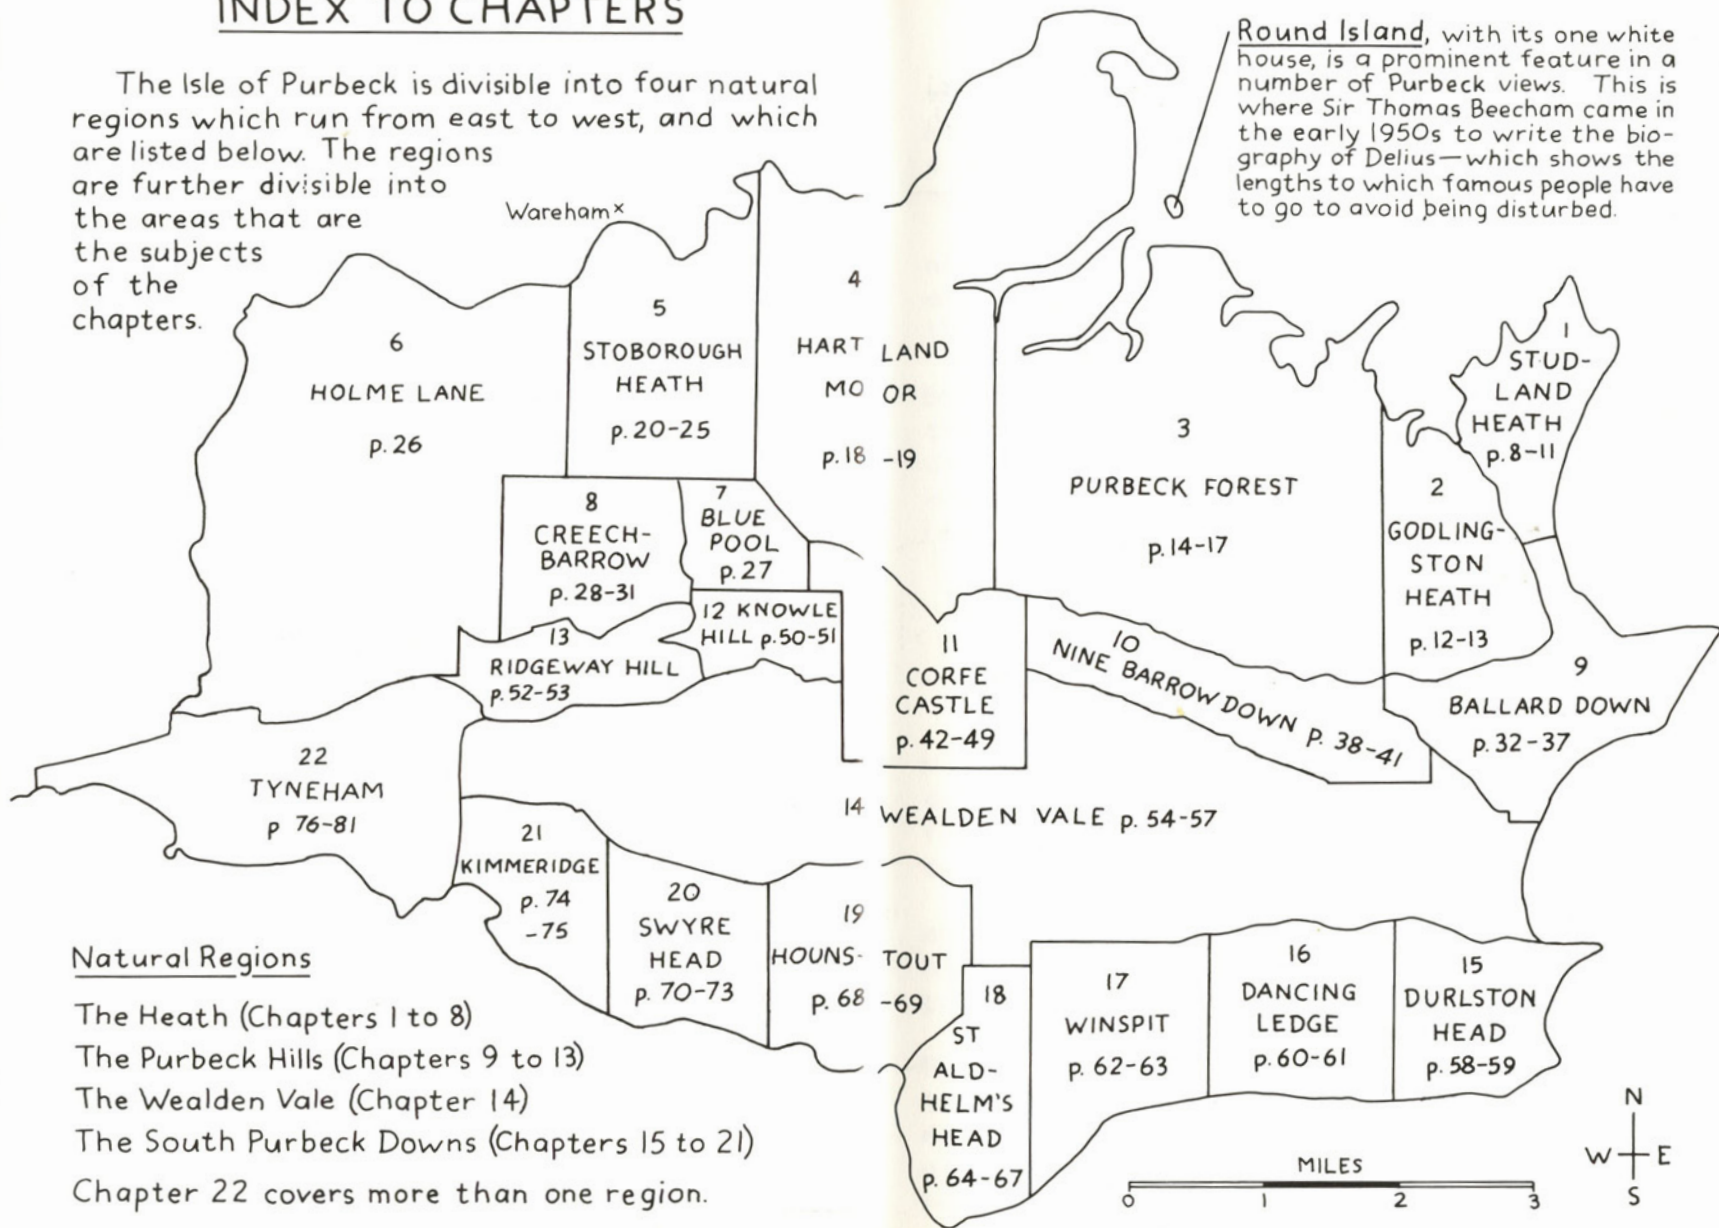 INDEX TO CHAPTERS
The Isle of Purbeck is divisible into four natural
regions which run from east to west, and which
are listed below. The regions
are further divisible into
the areas that are
the subjects
of the
chapters.
Round Island, with its one white
house, is a prominent feature in a
number of Purbeck views. This is
where Sir Thomas Beecham came in
the early 1950s to write the bio-
graphy of Delius—which shows the
lengths to which famous people have
to go to avoid being disturbed.
Wareham x
6
HOLME LANE
p. 26
5
STOBOROUGH
HEATH
p. 20-25
4
HARTLAND
MOOR
p. 18-19
3
PURBECK FOREST
p. 14-17
1
STUD-
LAND
HEATH
p. 8-11
2
GODLING-
STON
HEATH
p. 12-13
8
CREECH-
BARROW
p. 28-31
7
BLUE
POOL
p. 27
12 KNOWLE
HILL p. 50-51
13
RIDGEWAY HILL
p. 52-53
11
CORFE
CASTLE
p. 42-49
10
NINE BARROW DOWN p. 38-41
9
BALLARD DOWN
p. 32-37
22
TYNEHAM
p 76-81
14 WEALDEN VALE p. 54-57
21
KIMMERIDGE
p. 74
-75
20
SWYRE
HEAD
p. 70-73
19
HOUNS-TOUT
p. 68-69
18
ST
ALD-
HELM'S
HEAD
p. 64-67
17
WINSPIT
p. 62-63
16
DANCING
LEDGE
p. 60-61
15
DURLSTON
HEAD
p. 58-59
Natural Regions
The Heath (Chapters 1 to 8)
The Purbeck Hills (Chapters 9 to 13)
The Wealden Vale (Chapter 14)
The South Purbeck Downs (Chapters 15 to 21)
Chapter 22 covers more than one region.
MILES
0 1 2 3
N
W E
S